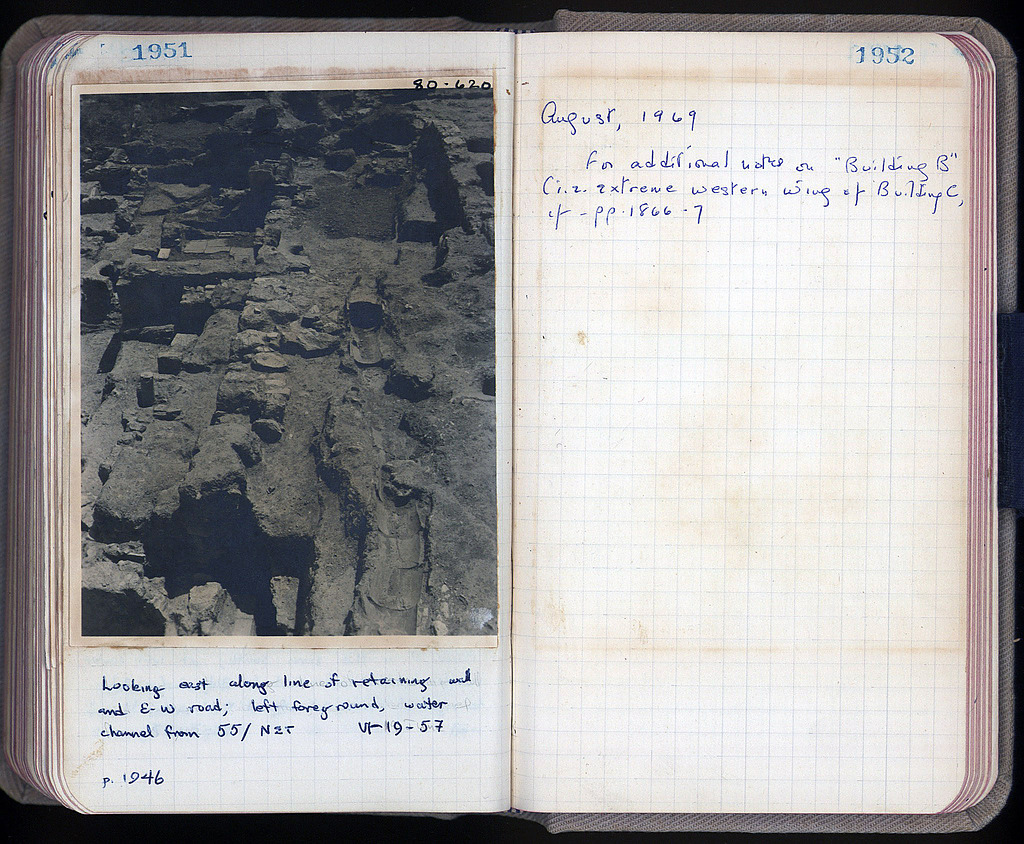 1951
80-620
Looking east along line of retaining wall
and E-W road; left foreground, water
channel from 55/ NET VI-19-57
p. 1946
1952
August, 1969
For additional notes on "Building B"
(i.e. extreme western wing of Building C,
cf - pp. 1866-7